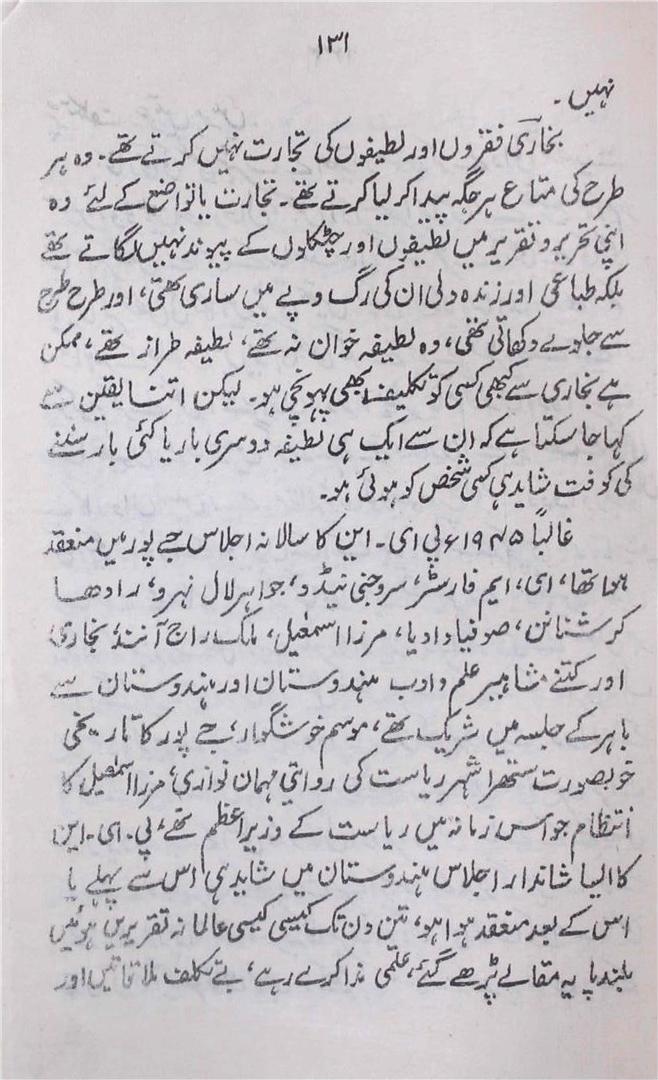 ۱۳۱
نہیں۔
بخاری فقروں اور لطیفوں کی تجارت نہیں کرتے تھے۔ وہ ہر
طرح کی متاع ہر جگہ پیدا کر لیا کرتے تھے۔ تجارت یا تواضع کے لئے وہ
اپنی تحریر و تقریر میں لطیفوں اور چٹکلوں کے پیوند نہیں لگاتے تھے
بلکہ طباعی اور زندہ دلی ان کی رگ و پے میں ساری تھی، اور طرح طرح
سے جلوے دکھاتی تھی، وہ لطیفہ خوان نہ تھے، لطیفہ طراز تھے، ممکن
ہے بخاری سے کبھی کسی کو تکلیف بھی پہونچی ہو۔ لیکن اتنا یقین سے
کہا جا سکتا ہے کہ ان سے ایک ہی لطیفہ دوسری بار یا کئی بار سننے
کی کوفت شاید ہی کسی شخص کو ہوئی ہو۔
غالباً ۱۹۴۵ء پی ای۔ این کا سالانہ اجلاس جے پور میں منعقد
ہوا تھا، ای، ایم فارسٹر، سروجنی نیڈو، جواہر لال نہرو، رادھا
کرشنانن، صوفیا وادیا، مرزا اسمٰعیل، ملک راج آنند، بخاری
اور کتنے مشاہیر علم و ادب ہندوستان اور ہندوستان سے
باہر کے جلسہ میں شریک تھے، موسم خوشگوار، جے پور کا تاریخی
خوبصورت ستھرا شہر ریاست کی روایتی مہمان نوازی، مرزا اسمٰعیل کا
انتظام جو اس زمانہ میں ریاست کے وزیر اعظم تھے، پی۔ ای۔ این
کا ایسا شاندار اجلاس ہندوستان میں شاید ہی اس سے پہلے یا
اس کے بعد منعقد ہوا ہو، تین دن تک کیسی کیسی عالمانہ تقریریں ہوئیں
بلند پایہ مقالے پڑھے گئے، علمی مذاکرے رہے، بے تکلف ملاقاتیں اور